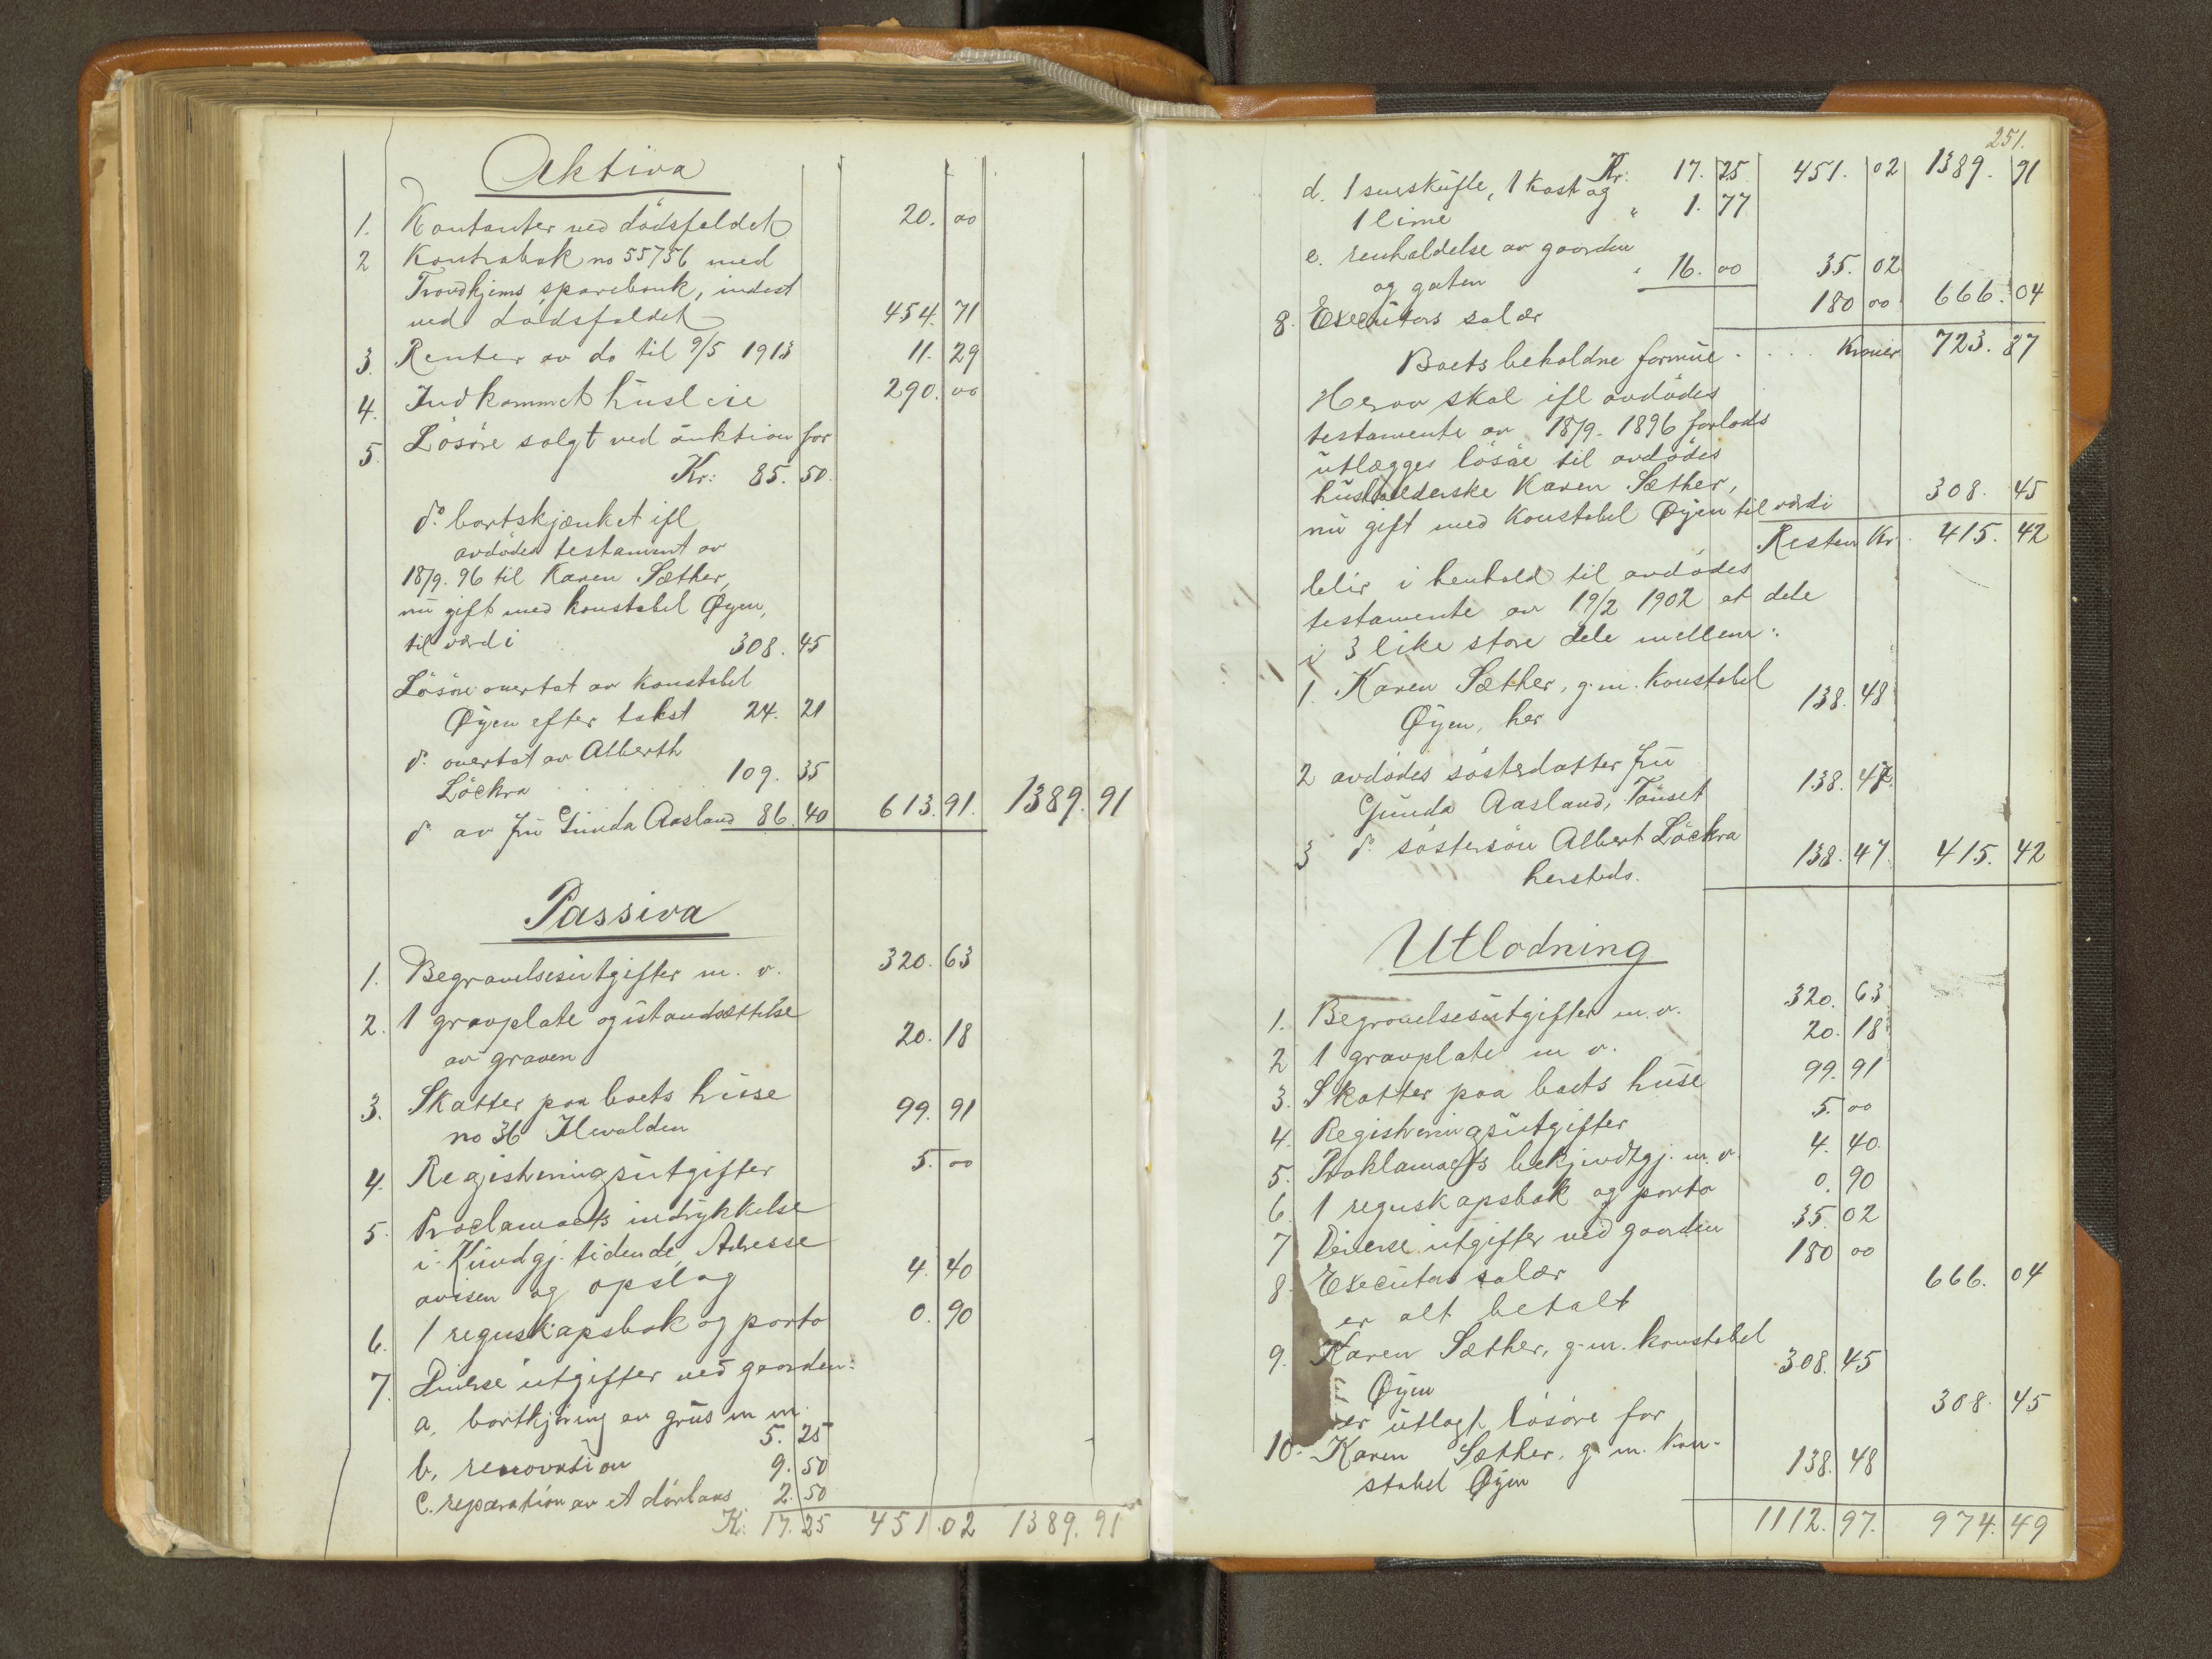 Aktiva
1. Kontanter ved dödsfaldet 20.00
2 Kontrabok no 55756 med
Trondhjems sparebank, indest
ved dödsfaldet 454.71
3. Renter av do til 9/5 1913 11.29
4. Indkommet husleie 290.00
5. Lösöre solgt ved auktion for
Kr: 85.50.
do. bortskjænket ifl
avdödes testament av
18/9. 96 til Karen Sæther,
nu gift med konstabel Øyen,
til værdi 308.45
Lösöre overtat av konstabel
Øyen efter takst 24.21
do. overtat av Alberth
Löckra 109.35
do. av fru Gunda Aasland 86.40 613.91. 1389.91
Passiva
1. Begravelsesutgifter m. v. 320.63
2. 1 gravplate og istandsættelse
av graven 20.18
3. Skatter paa boets huse
no 36 Ilevolden 99.91
4. Registreringsutgifter 5.00
5. Proclamaets indrykkelse
i Kundgj. tidende, Adresse
avisen og opslag 4.40
6. 1 regnskapsbok og porto 0.90
7. Diverse utgifter ved gaarden:
a, bortkjöring av grus m m. 5.25
b, renovation 9.50
c. reparation av et dörlaas 2.50
K: 17.25 451.02 1389.91
251.
Kr: 17.25 451.02 1389.91
d. 1 sneskufle, 1 kost og
1 lime " 1.77
e. renholdelse av gaarden
og gaten " 16.00 35.02
8. Executors salær 180 00 666.04
Boets beholdne formue . . . . Kroner 723.87
Herav skal ifl avdödes
testamente av 18/9. 1896 forlods
utlægges lösöre til avdödes
husholderske Karen Sæther,
nu gift med konstabel Øyen til værdi 308.45
Resten Kr. 415.42
blir i henhold til avdödes
testamente av 19/2 1902 at dele
i 3 like store dele mellem:
1. Karen Sæther, g. m. konstabel
Øyen, her 138.48
2 avdödes sösterdatter fru
Gunda Aasland, Tönset 138.47.
3 do. söstersön Albert Löckra
hersteds. 138.47 415.42
Utlodning
1. Begravelsesutgifter m. v. 320.63
2 1 gravplate m v. 20.18
3. Skatter paa boets huse 99.91
4. Registreringsutgifter 5.00
5. Proklamaets bekjendtgj. m. v. 4.40.
6. 1 regnskapsbok og porto 0.90
7 Diverse utgifter ved gaarden 35.02
8 Executors salær 180 00
er alt betalt 666.04
9. Karen Sæther, g. m. konstabel
Øyen 308.45
er utlagt lösöre for 308.45
10. Karen Sæther, g. m. kon-
stabel Øyen 138.48
1112.97. 974.49